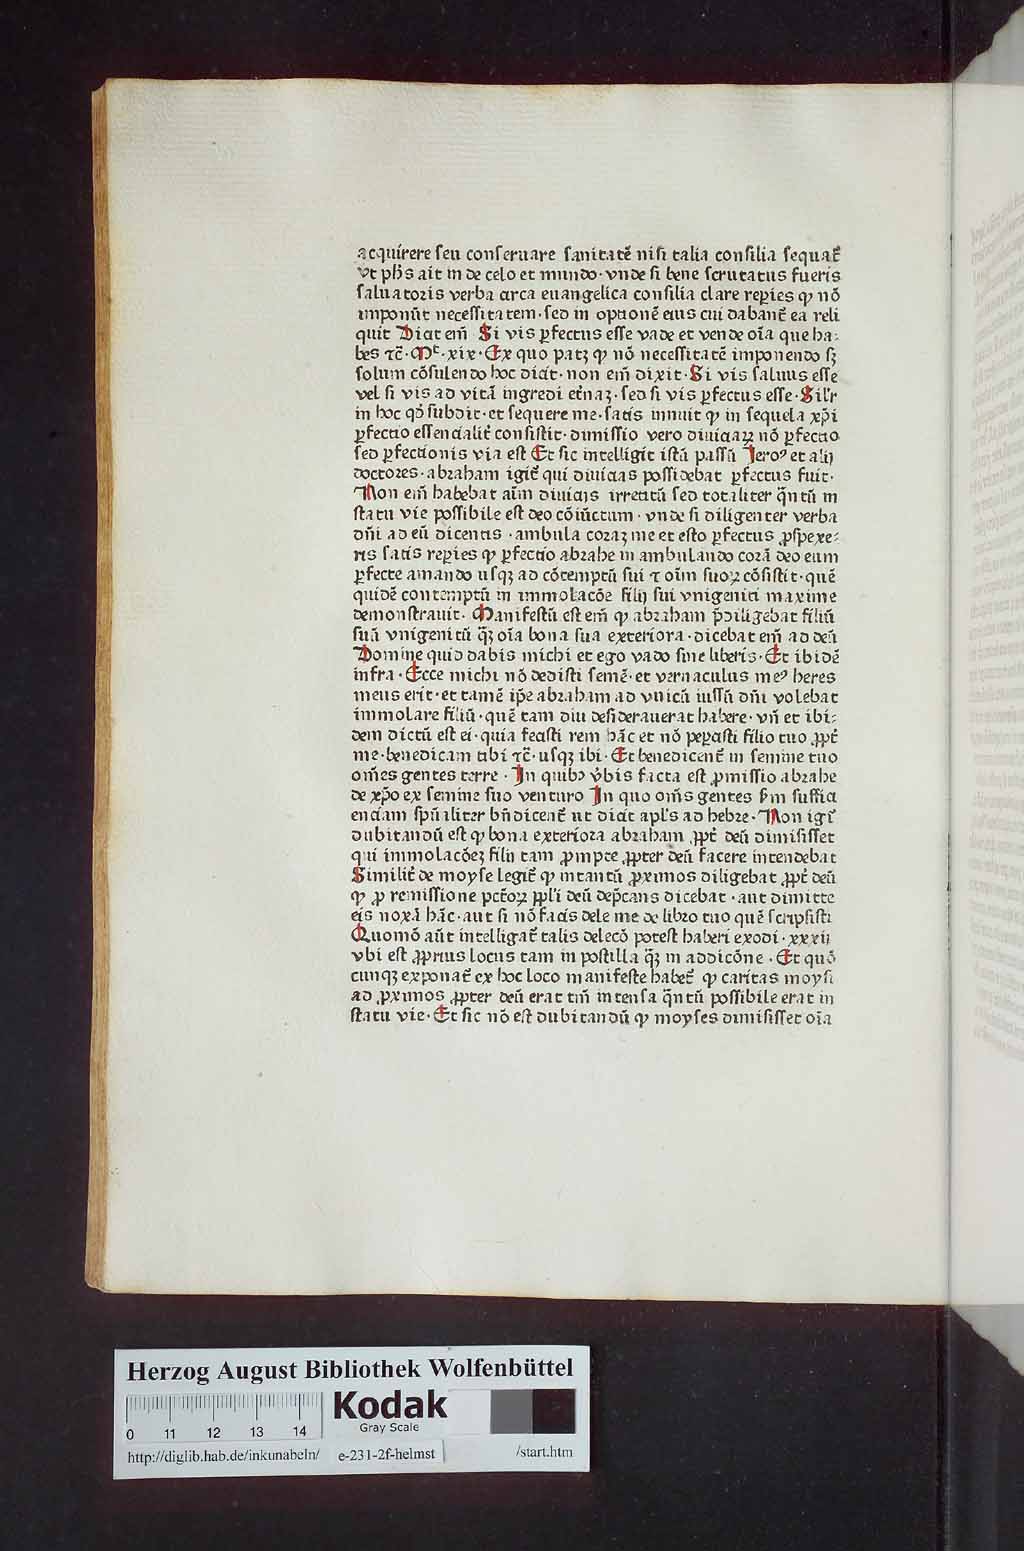 acquirere seu conseruare sanitatē nisi talia consilia sequat᷑
vt ph̄s ait in de celo et mundo· vnde si bene scrutatus fueris
saluatoris verba circa euangelica consilia clare reꝑies ꝙ nō
imponūt necessitatem· sed in optionē eius cui dabant᷑ ea reli
quit Dicit em̄ Si vis ꝑfectus esse vade et vende oīa que ha⸗
bes ⁊c̄· Mᵗ· xix· Ex quo patꝫ ꝙ nō necessitatē imponendo sꝫ
solum cōsulendo hoc dicit· non em̄ dixit· Si vis saluus esse
vel si vis ad vitā ingredi et᷑naꝫ· sed si vis ꝑfectus esse· Sil'r
in hoc qd̓ subdit· et sequere me· satis innuit ꝙ in sequela xp̄i
ꝑfectio essencialit᷑ consistit· dimissio vero diuiciaꝝ nō ꝑfectio
sed ꝑfectionis via est Et sic intelligit istū passū Jeroꝰ et alij
doctores· abraham igit᷑ qui diuicias possidebat ꝑfectus fuit·
Non em̄ habebat aīm diuicijs irretitū sed totaliter q̄ntū in
statu vie possibile est deo cōiūctum· vnde si diligenter verba
dn̄i ad eū dicentis· ambula coraꝫ me et esto ꝑfectus ꝓspexe⸗
ris satis reꝑies ꝙ ꝑfectio abrahe in ambulando corā deo eum
ꝑfecte amando usqꝫ ad cōtemptū sui ⁊ oīm suoꝝ cōsistit· quē
quidē contemptū in immolacōe filij sui vnigeniti maxime
demonstrauit· Manifestū est em̄ ꝙ abraham p̄diligebat filiū
suū vnigenitū q̄ꝫ oīa bona sua exteriora· dicebat em̄ ad deū
Domine quid dabis michi et ego vado sine liberis· Et ibidē
infra· Ecce michi nō dedisti semē· et vernaculus meꝰ heres
meus erit· et tamē ip̄e abraham ad vnicū iussū dn̄i volebat
immolare filiū· quē tam diu desiderauerat habere· vn̄ et ibi⸗
dem dictū est ei· quia fecisti rem hāc et nō peꝑcisti filio tuo ꝓpt᷑
me· benedicam tibi ⁊c̄· usqꝫ ibi· Et benedicent᷑ in semine tuo
om̄es gentes terre· In quibꝰ v̓bis facta est ꝓmissio abrahe
de xp̄o ex semine suo venturo In quo om̄s gentes s̄m suffici
enciam sp̄ualiter bn̄dicent᷑ ut dicit apl's ad hebre· Non igit᷑
dubitandū est ꝙ bona exteriora abraham ꝓpt᷑ deū dimisisset
qui immolacōeꝫ filij tam ꝓmpte ꝓpter deū facere intendebat
Similit᷑ de moyse legit᷑ ꝙ intantū ꝓximos diligebat ꝓpt᷑ deū
ꝙ ꝓ remissione pct̄oꝝ ppl'i deū dep̄cans dicebat· aut dimitte
eis noxā hāc· aut si nō facis dele me de libro tuo quē scripsisti
Quomō aūt intelligat᷑ talis delecō potest haberi exodi· xxxij
vbi est ꝓprius locus tam in postilla q̄ꝫ in addicōne· Et quō
cunqꝫ exponat᷑ ex hoc loco manifeste habet᷑ ꝙ caritas moysi
ad ꝓximos ꝓpter deū erat tm̄ intensa q̄ntū possibile erat in
statu vie· Et sic nō est dubitandū ꝙ moyses dimisisset oīa
Herzog August Bibliothek Wolfenbüttel
Kodak
Gray Scale
0 11 12 13 14
http://diglib.hab.de/inkunabeln/ e-231-2f-helmst /start.htm